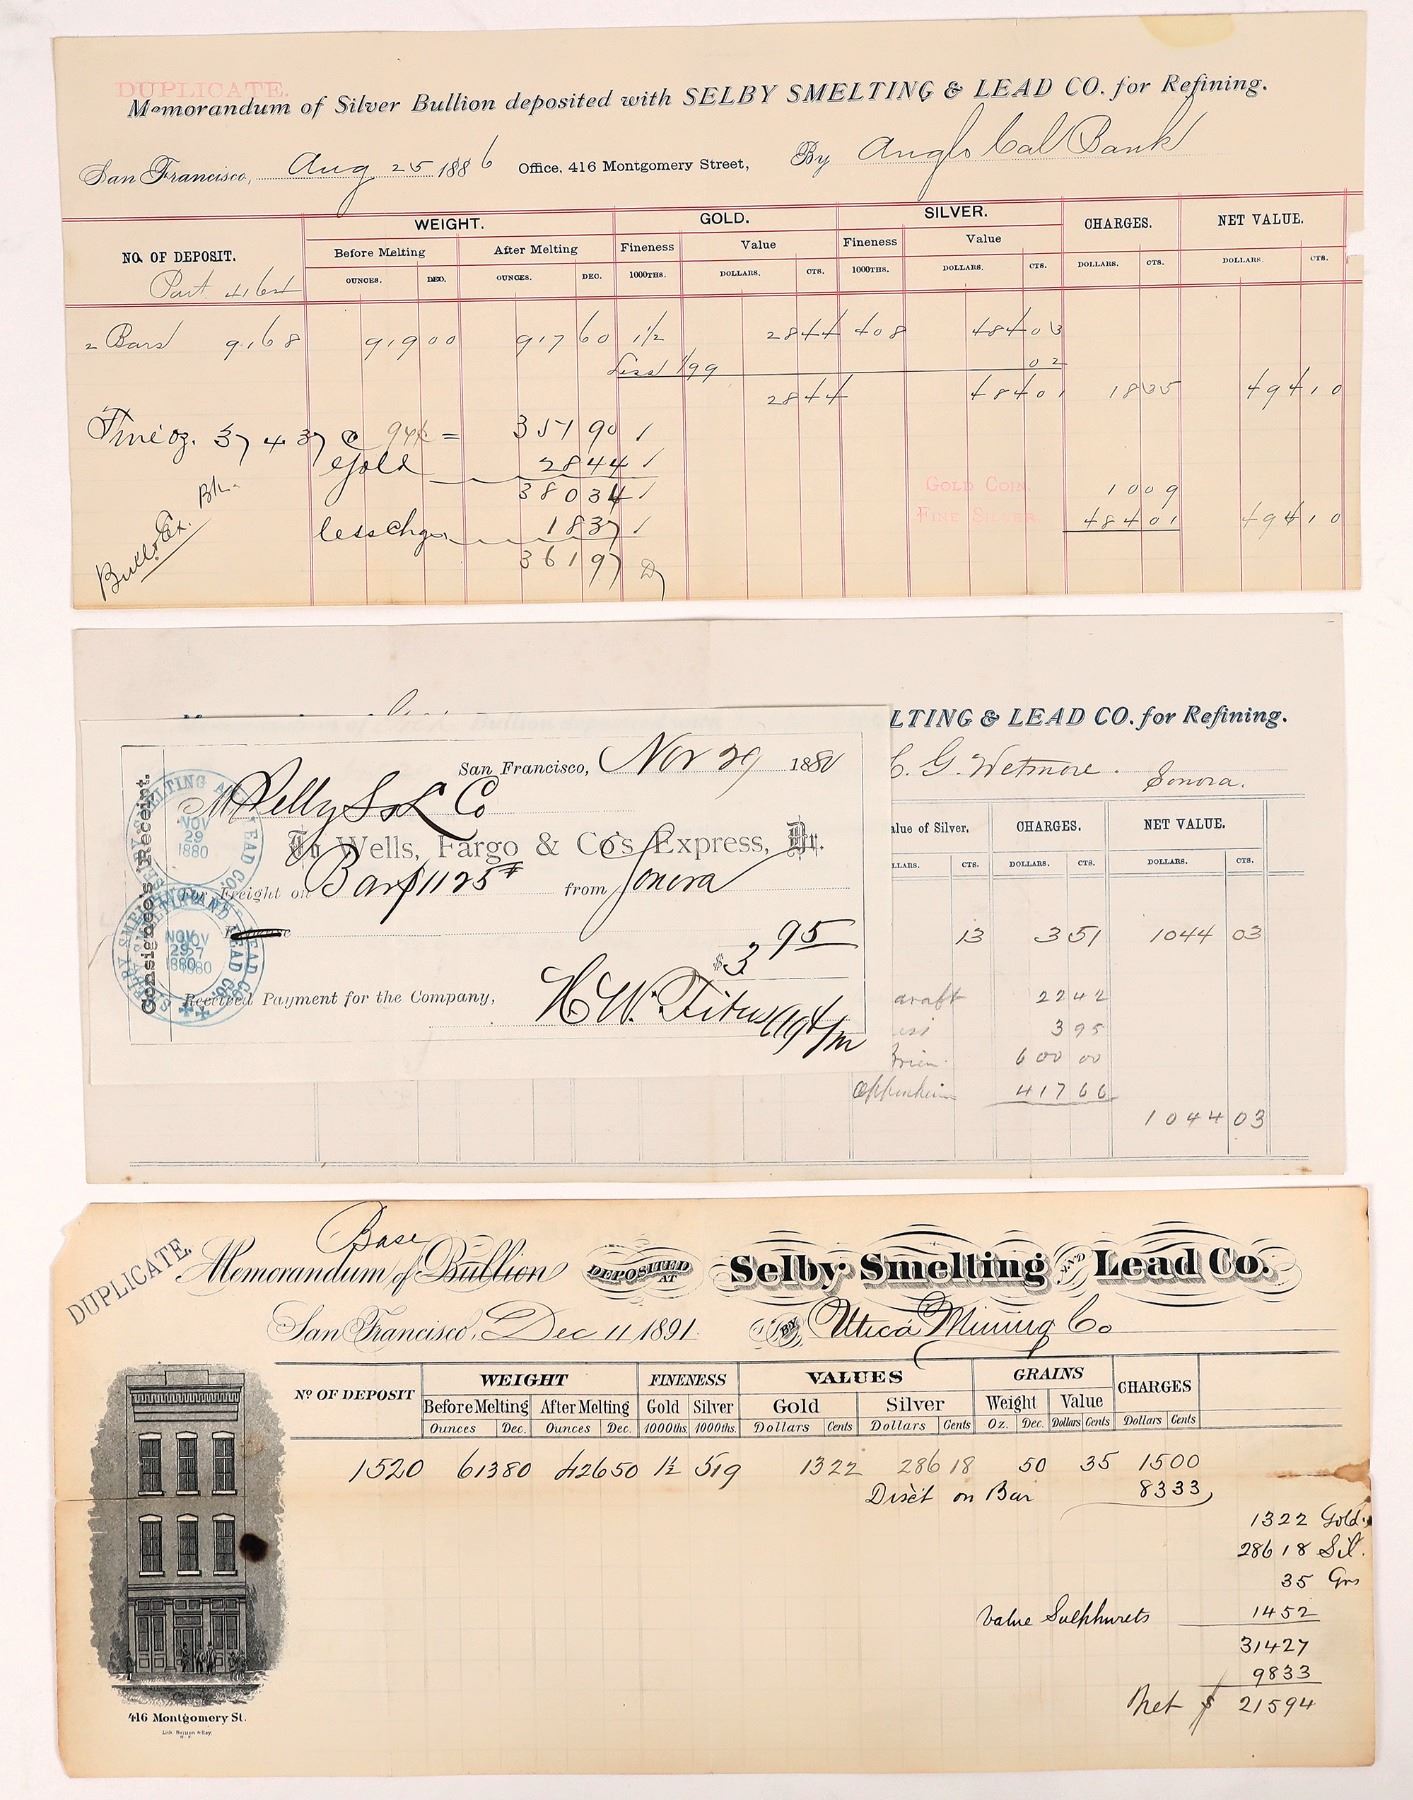 DUPLICATE.
Memorandum of Silver Bullion deposited with SELBY SMELTING & LEAD CO. for Refining.
San Francisco, Aug 25 1886 Office, 416 Montgomery Street, By Anglo Cal Bank
WEIGHT. GOLD. SILVER. CHARGES. NET VALUE.
NO. OF DEPOSIT. Before Melting After Melting Fineness Value Fineness Value
OUNCES. DEC. OUNCES. DEC. 1000THS. DOLLARS. CTS. 1000THS. DOLLARS. CTS. DOLLARS. CTS. DOLLARS. CTS.
Part 4164
2 Bars 9168 919 00 917 60 1½ 28 44 408 484 03
Less 1/99 02
28 44 484 01 18 35 494 10
Fine oz. 374 37 @ 94¢ = 351 90 /
Gold 28 44 /
380 34 /
GOLD COIN 10 09
FINE SILVER 484 01 494 10
less chgs 18 37 /
361 97
Bull & Ex. Bk.
LTING & LEAD CO. for Refining.
San Francisco, Nov 29 1880
C. G. Wetmore. Sonora.
M Selby S & L Co
To Wells, Fargo & Co's Express, Dr.
For Freight on Bars $1125 from Sonora
$3 95
Received Payment for the Company,
H. W. Titus Agt
Consignee's Receipt.
SELBY SMELTING AND LEAD CO.
NOV 29 1880
alue of Silver. CHARGES. NET VALUE.
LLARS. CTS. DOLLARS. CTS. DOLLARS. CTS.
13 3 51 1044 03
draft 22 42
3 95
600 00
Oppenheim 417 66
1044 03
DUPLICATE.
Base
Memorandum of Bullion DEPOSITED AT Selby Smelting AND Lead Co.
San Francisco, Dec 11 1891. BY Utica Mining Co
Nº OF DEPOSIT WEIGHT FINENESS VALUES GRAINS CHARGES
Before Melting After Melting Gold Silver Gold Silver Weight Value
Ounces Dec. Ounces Dec. 1000ths. 1000ths. Dollars Cents Dollars Cents Oz. Dec. Dollars Cents Dollars Cents
1520 613 80 426 50 1½ 519 13 22 286 18 50 35 15 00
Disc't on Bar 83 33
13 22 Gold.
286 18 Sil.
35 Grs
Value Sulphurets 14 52
314 27
98 33
Net $ 215 94
416 Montgomery St.